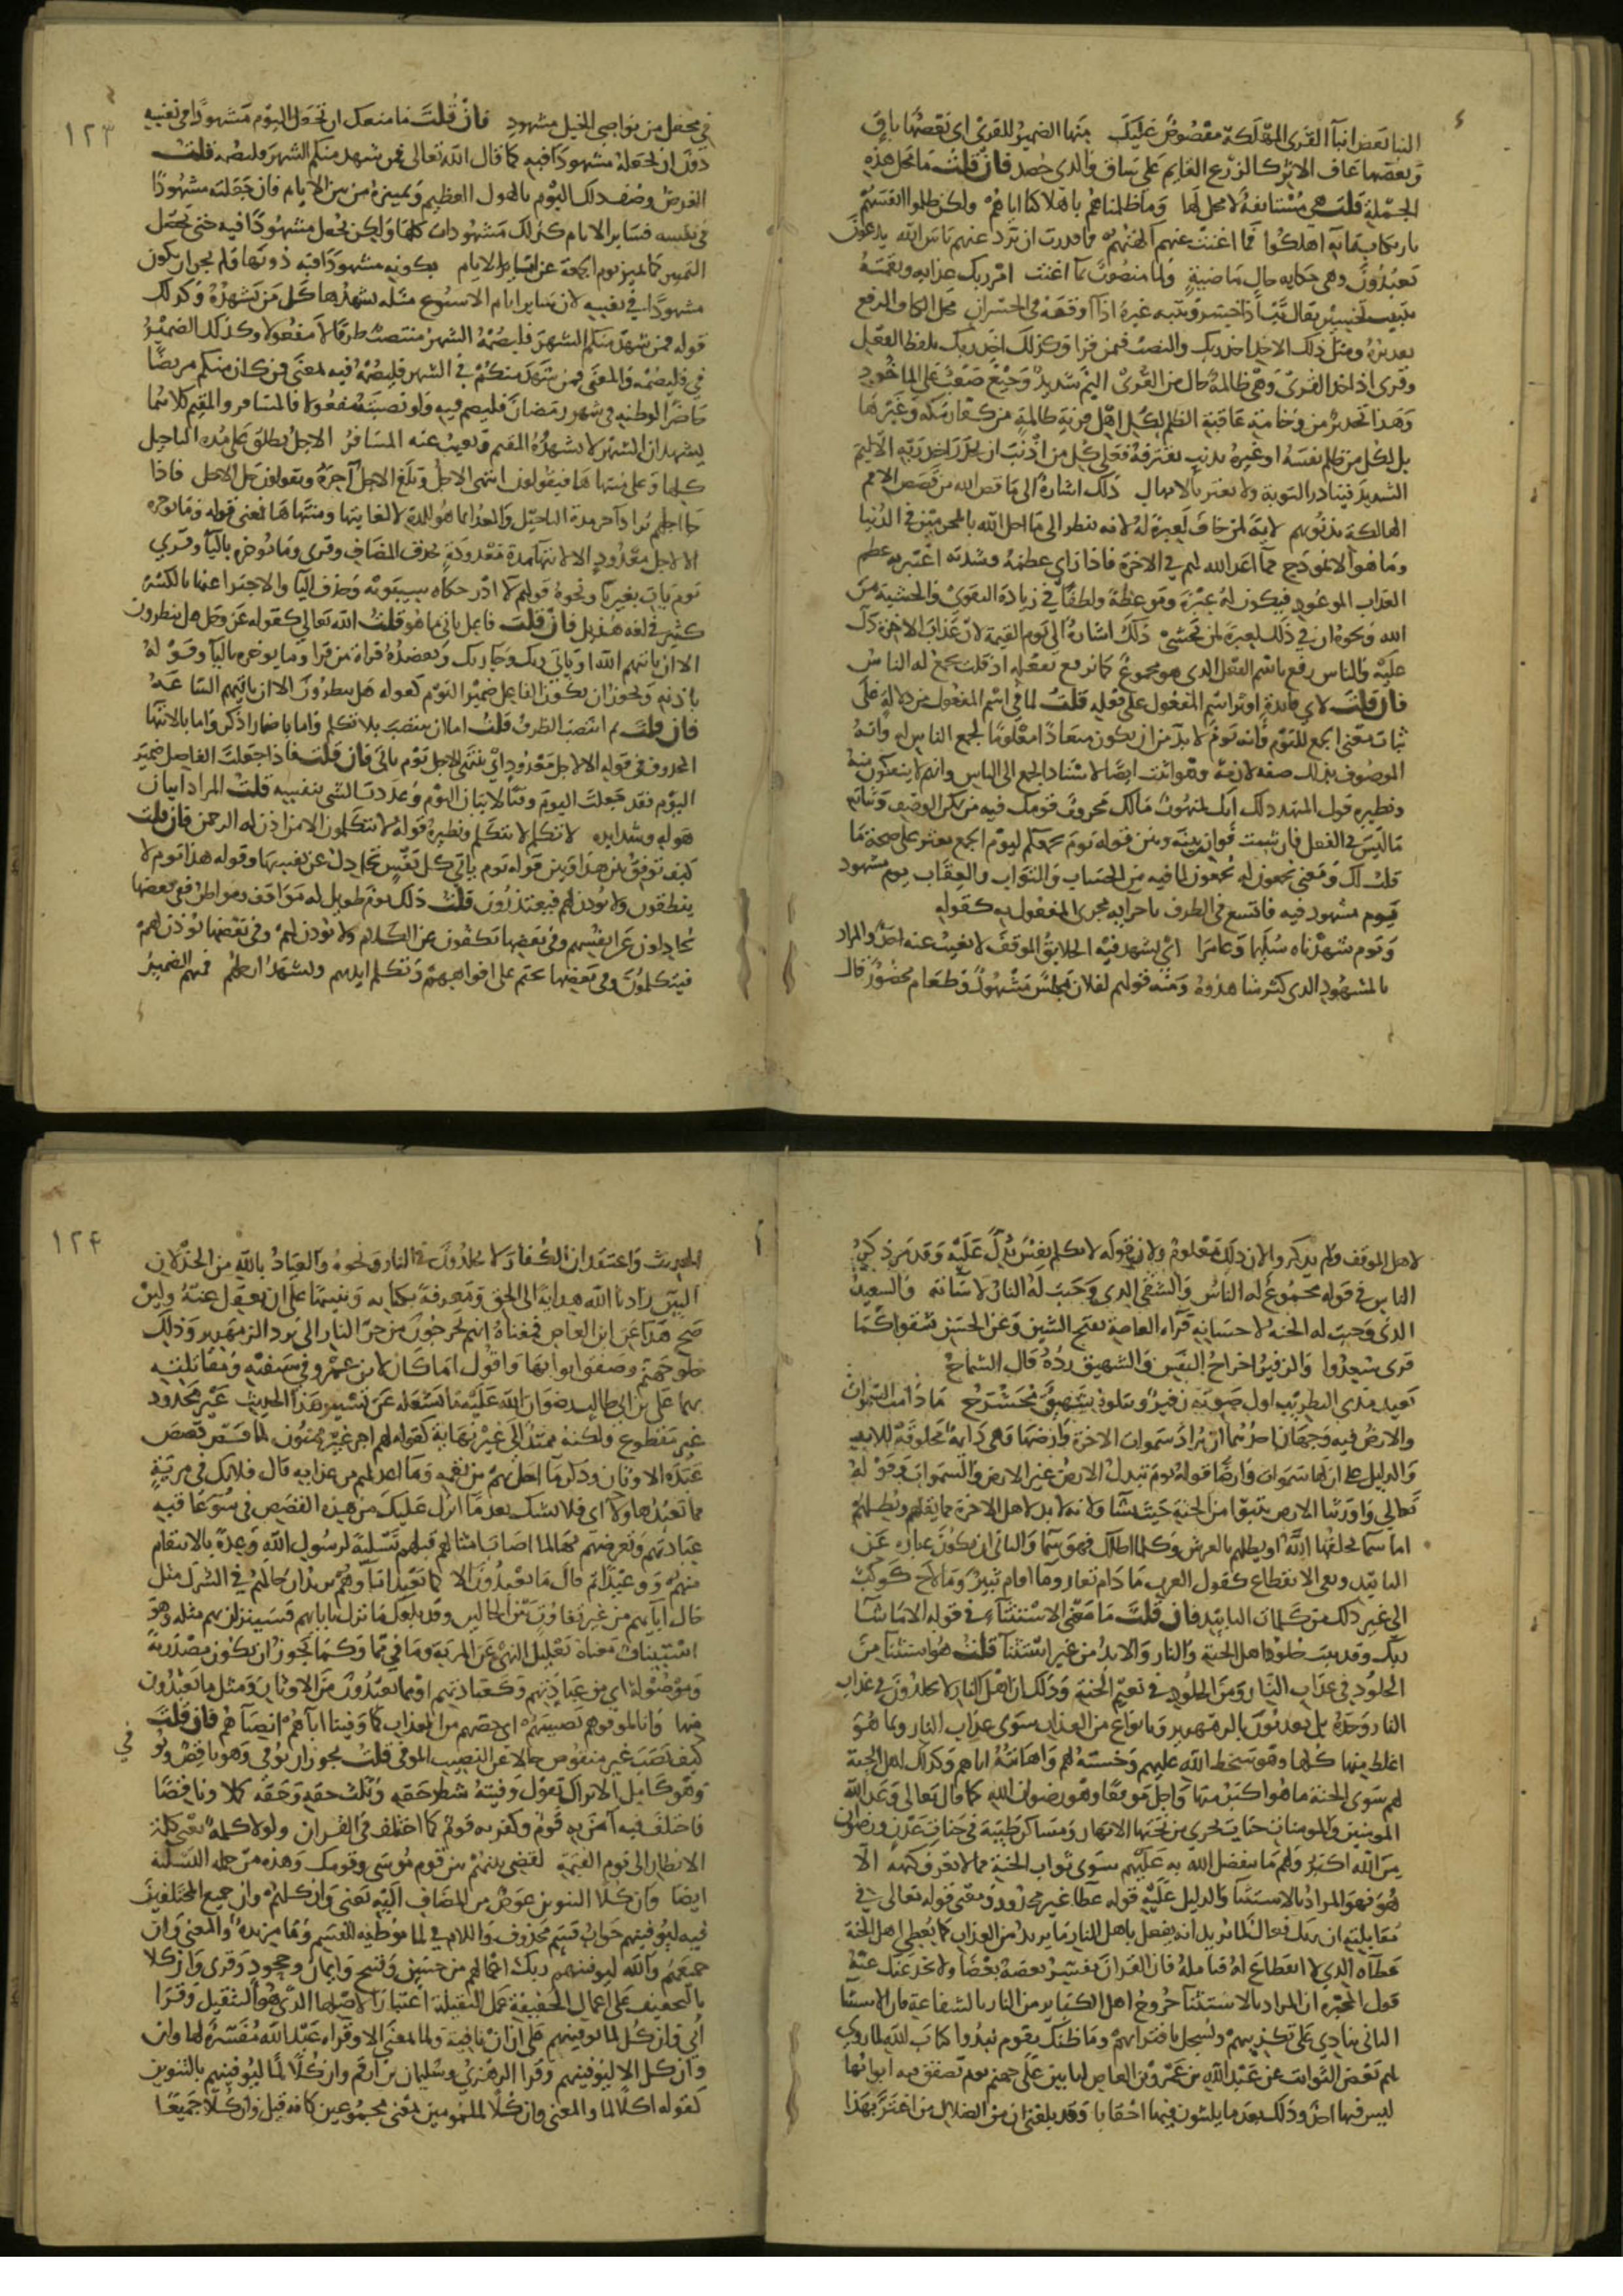 النبا بعض انبآ القرى المهلكة مقصوص عليك منها الضمير للقرى اى بعضها باق
وبعضها عافى الاثر كالزرع القايم على ساق والذى حصد فان قلت ما محل هذه
الجملة قلت هى مستانفة لا محل لها وما ظلمناهم باهلاكنا اياهم ولكن ظلموا انفسهم
بارتكاب ما به اهلكوا فما اغنت عنهم الهتهم فما قدرت ان ترد عنهم باس الله يدعون
تعبدون وهى حكاية حال ماضية ولما منصوب بما اغنت امر ربك عذابه ونقمته
تتبيب تخسير يقال تب اذا خسر وتببه غيره اذا اوقعه فى الخسران محل الكاف الرفع
تقديره ومثل ذلك الاخذ اخذ ربك والنصب فيمن قرا وكذلك اخذ ربك بلفظ الفعل
وقرى اذ اخذ القرى وهى ظالمة حال من القرى اليم شديد وجيع صعب على الماخوذ
وهذا تحذير من وخامة عاقبة الظلم لكل اهل قرية ظالمة من كفار مكة وغيرها
بل لكل من ظلم نفسه او غيره بذنب يقترفه فعلى كل من اذنب ان يحذر اخذ ربه الاليم
الشديد فيبادر التوبة ولا يغتر بالامهال ذلك اشارة الى ما قص الله من قصص الامم
الهالكة بذنوبهم لاية لمن خاف لعبرة له لانه ينظر الى ما احل الله بالمجرمين فى الدنيا
وما هو الا نموذج مما اعد الله لهم فى الاخرة فاذا راى عظمه وشدته اعتبر به عظم
العذاب الموعود فيكون له عبرة وموعظة ولطفا فى زيادة التقوى والخشية من
الله ونحوه ان فى ذلك لعبرة لمن يخشى ذلك اشارة الى يوم القيمة لان عذاب الاخرة دل
عليه والناس رفع باسم المفعول الذى هو مجموع كما يرفع بفعله اذ قلت يجمع له الناس
فان قلت لاى فايدة اوثر اسم المفعول على فعله قلت لما فى اسم المفعول من دلالة على
ثبات معنى الجمع لليوم وانه يوم لا بد من ان يكون ميعادا معلوما لجمع الناس له وانه
الموصوف بذلك صفة لازمة وهو اثبت ايضا لاسناد الجمع الى الناس وانهم لا ينفكون منه
ونظيره قول المتهدد لك انك لمنهوب مالك محروب قومك فيه من تمكن الوصف وثباته
ما ليس فى الفعل فان شيت فوازن بينه وبين قوله يوم يجمعكم ليوم الجمع تعثر على صحة ما
قلت لك ومعنى يجمعون له يجمعون لما فيه من الحساب والثواب والعقاب يوم مشهود
يوم مشهود فيه فاتسع فى الظرف باجرايه مجرى المفعول به كقوله
ويوم شهدناه سليما وعامرا اى يشهد فيه الخلايق الموقف لا يغيب عنه احد والمراد
بالمشهود الذى كثر شاهدوه ومنه قولهم لفلان مجلس مشهود وطعام محضور قال
١٢٣
فى محفل من نواصى الخيل مشهود فان قلت فما منعك ان تجعل اليوم مشهودا فى نفسه
دون ان تجعله مشهودا فيه كما قال الله تعالى فمن شهد منكم الشهر فليصمه قلت
الغرض وصف ذلك اليوم بالهول والعظم وتمييزه من بين الايام فان جعلته مشهودا
فى نفسه فساير الايام كذلك مشهودات كلها ولكن يجعل مشهودا فيه حتى يحصل
التميز كما تميز يوم الجمعة عن ساير الايام بكونه مشهودا فيه دونها فلم يجز ان يكون
مشهودا فى نفسه لان ساير ايام الاسبوع مثله يشهدها كل من يشهده وكذلك
قوله فمن شهد منكم الشهر فليصمه الشهر منتصب ظرفا لا مفعولا وكذلك الضمير
فى فليصمه والمعنى فمن شهد منكم فى الشهر فليصمه فيه بمعنى فمن كان منكم مريضا
حاضرا لوطنه فى شهر رمضان فليصم فيه ولو نصبته مفعولا فالمسافر والمقيم كلاهما
يشهدان الشهر لا يشهده المقيم ويغيب عنه المسافر الاجل يطلق على مدة التاجيل
كلها وعلى منتهاها فيقولون انتهى الاجل وبلغ الاجل آخره ويقولون حل الاجل فاذا
جا اجلهم يراد آخر مدة التاجيل والعد انما هو للمدة لا لغايتها ومنتهاها فمعنى قوله وما نوخره
الا لاجل معدود الا لانتهآ مدة معدودة بحذف المضاف وقرى وما يوخره باليآ وقرى
يوم يات بغير يا ونحوه قولهم لا ادر حكاه سيبويه وحذف اليآ والاجتزا عنها بالكسرة
كثير فى لغة هذيل فان قلت فاعل ياتى ما هو قلت الله تعالى كقوله عز وجل هل ينظرون
الا ان ياتيهم الله او ياتى ربك وجا ربك وتعضده قراة من قرا وما يوخره باليآ وقوله
باذنه ويجوز ان يكون الفاعل ضمير اليوم كقوله هل ينظرون الا ان تاتيهم الساعة
فان قلت بم انتصب الظرف قلت اما ان ينتصب بلا تكلم واما باضمار اذكر واما بالانتها
المحذوف فى قوله الا لاجل معدود اى ينتهى الاجل يوم ياتى فان قلت فاذا جعلت الفاعل ضمير
اليوم فقد جعلت اليوم وقتا لاتيان اليوم وحددت الشى بنفسه قلت المراد اتيان
هوله وشدايده لا تكلم لا تتكلم ونظيره قوله لا يتكلمون الا من اذن له الرحمن فان قلت
كيف توفق بين هذا وبين قوله يوم ياتى كل نفس تجادل عن نفسها وقوله هذا يوم لا
ينطقون ولا يوذن لهم فيعتذرون قلت ذلك يوم طويل له مواقف ومواطن ففى بعضها
يجادلون عن انفسهم وفى بعضها يكفون عن الكلام ولا يوذن لهم وفى بعضها يوذن لهم
فيتكلمون وفى بعضها يختم على افواههم وتكلم ايديهم وتشهد ارجلهم فمنهم الضمير
لاهل الموقف ولم يذكروا لان ذلك معلوم ولان قوله لا تكلم نفس يدل عليه وقد مر ذكر
الناس فى قوله مجموع له الناس والشقى الذى وجبت له النار لاساته والسعيد
الذى وجبت له الجنة لاحسانه قرآة العامة بفتح الشين وعن الحسن شقوا كما
قرى سعدوا والزفير اخراج النفس والشهيق رده قال الشماخ
بعيد مدى التطريب اول صوته زفير ويتلوه شهيق محشرج ما دامت السموات
والارض فيه وجهان احدهما ان يراد سموات الاخرة وارضها وهى دايمة مخلوقة للابد
والدليل على ان لها سموات وارضا قوله يوم تبدل الارض غير الارض والسموات وقوله
تعالى واورثنا الارض نتبوا من الجنة حيث نشآ ولانه لا بد لاهل الاخرة مما يقلهم ويظلهم
اما سما يخلقها الله او يظلهم العرش وكل ما اظلك فهو سما والثانى ان يكون عبارة عن
التابيد ونفى الانقطاع كقول العرب ما دام تعار وما اقام ثبير وما لاح كوكب
الى غير ذلك من كلمات التابيد فان قلت ما معنى الاستثنآ فى قوله الا ما شآ
ربك وقد ثبت خلود اهل الجنة والنار والابد من غير استثنآ قلت هو استثنا من
الخلود فى عذاب النار ومن الخلود فى نعيم الجنة وذلك ان اهل النار لا يخلدون فى عذاب
النار وحده بل يعذبون بالزمهرير وبانواع من العذاب سوى عذاب النار وبما هو
اغلظ منها كلها وهو سخط الله عليهم وخسئه لهم واهانته اياهم وكذلك اهل الجنة
لهم سوى الجنة ما هو اكبر منها واجل موقعا وهو رضوان الله كما قال تعالى وعد الله
المومنين والمومنات جنات تجرى من تحتها الانهار ومساكن طيبة فى جنات عدن ورضوان
من الله اكبر ولهم ما يتفضل الله به عليهم سوى ثواب الجنة مما لا يعرف كنهه الا
هو فهو المراد بالاستثنآ والدليل عليه قوله عطا غير مجذوذ ومعنى قوله تعالى فى
مقابلته ان ربك فعال لما يريد انه يفعل باهل النار ما يريد من العذاب كما يعطى اهل الجنة
عطآه الذى لا انقطاع له فتامله فان القران يفسر بعضه بعضا ولا يخدعنك عنه
قول المجبرة ان المراد بالاستثنآ خروج اهل الكباير من النار بالشفاعة فان الاستثنا
الثانى ينادى على تكذيبهم ويسجل بافترايهم وما ظنك بقوم نبذوا كتاب الله لما روى
لهم بعض الثوابت عن عبد الله بن عمرو بن العاص لياتين على جهنم يوم تصفق فيه ابوابها
ليس فيها احد وذلك بعد ما يلبثون فيها احقابا وقد بلغنى ان من الضلال من اغتر بهذا
١٢٤
الحديث واعتقد ان الكفار لا يخلدون فى النار ونحوه والعياذ بالله من الخذلان
المبين زادنا الله هداية الى الحق ومعرفة بكتابه وتنبيها على ان نعقل عنه ولين
صح هذا عن ابن العاص فمعناه انهم يخرجون من حر النار الى برد الزمهرير وذلك
خلو جهنم وصفق ابوابها واقول اما كان لابن عمرو فى سيفيه ومقاتلته
بهما على بن ابى طالب رضوان الله عليه ما يشغله عن تسيير هذا الحديث غير مجذوذ
غير مقطوع ولكنه ممتد الى غير نهاية كقوله لهم اجر غير ممنون لما قص قصص
عبدة الاوثان وذكر ما احل بهم من نقمه وما اعد لهم من عذابه قال فلا تك فى مرية
مما يعبد هاولا اى فلا تشك بعد ما انزل عليك من هذه القصص فى سو عاقبة
عبادتهم وتعرضهم بها لما اصاب امثالهم قبلهم تسلية لرسول الله وعدة بالانتقام
منهم ووعيدا لهم قال ما يعبدون الا كما يعبد ابآوهم يريد ان حالهم فى الشرك مثل
حال آبايهم من غير تفاوت بين الحالين وقد بلغك ما نزل بابايهم فسينزلن بهم مثله وهو
استيناف معناه تعليل النهى عن المرية وما فى مما وكما يجوز ان تكون مصدرية
وموصولة اى من عبادتهم وكعبادتهم او مما يعبدون من الاوثان ومثل ما يعبدون
منها وانا لموفوهم نصيبهم اى حظهم من العذاب كما وفينا ابآهم انصبآهم فان قلت
كيف نصب غير منقوص حالا عن النصيب الموفى قلت يجوز ان يوفى وهو ناقص ويوفى
وهو كامل الا تراك تقول وفيته شطر حقه وثلث حقه وحقه كملا وناقصا
فاختلف فيه آمن به قوم وكفر به قوم كما اختلف فى القران ولولا كلمة يعنى كلمة
الانظار الى يوم القيمة لقضى بينهم بين قوم موسى وقومك وهذه من جملة التسلية
ايضا وان كلا التنوين عوض من المضاف اليه يعنى وان كلهم وان جميع المختلفين
فيه ليوفينهم جواب قسم محذوف واللام فى لما موطئة للقسم وما مزيدة والمعنى وان
جميعهم والله ليوفينهم ربك اعمالهم من حسن وقبيح وايمان وجحود وقرى وان كلا
بالتخفيف على اعمال المخففة عمل الثقيلة اعتبارا لاصلها الذى هو الثقيل وقرا
ابى وان كل لما ليوفينهم على ان ان نافية ولما بمعنى الا وقراة عبد الله مفسرة لها وان
وان كل الا ليوفينهم وقرا الزهرى وسليمان بن ارقم وان كلا لما ليوفينهم بالتنوين
كقوله اكلا لما والمعنى وان كلا ملمومين بمعنى مجموعين كانه قيل وان كلا جميعا